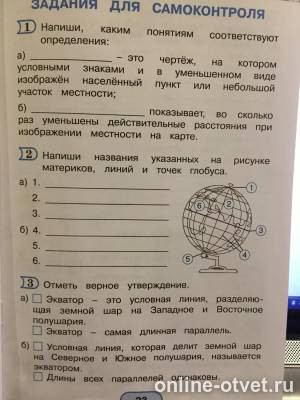 ЗАДАНИЯ ДЛЯ САМОКОНТРОЛЯ
1 Напиши, каким понятиям соответствуют
определения:
а) ____________ – это чертёж, на котором
условными знаками и в уменьшенном виде
изображён населённый пункт или небольшой
участок местности;
б) ____________ показывает, во сколько
раз уменьшены действительные расстояния при
изображении местности на карте.
2 Напиши названия указанных на рисунке
материков, линий и точек глобуса.
а) 1. ____________
2. ____________
3. ____________
б) 4. ____________
5. ____________
6. ____________
1
2
6
4
3
5
3 Отметь верное утверждение.
а) Экватор – это условная линия, разделяю-
щая земной шар на Западное и Восточное
полушария.
Экватор – самая длинная параллель.
б) Условная линия, которая делит земной шар
на Северное и Южное полушария, называется
экватором.
Длины всех параллелей одинаковы.
23
online-otvet.ru